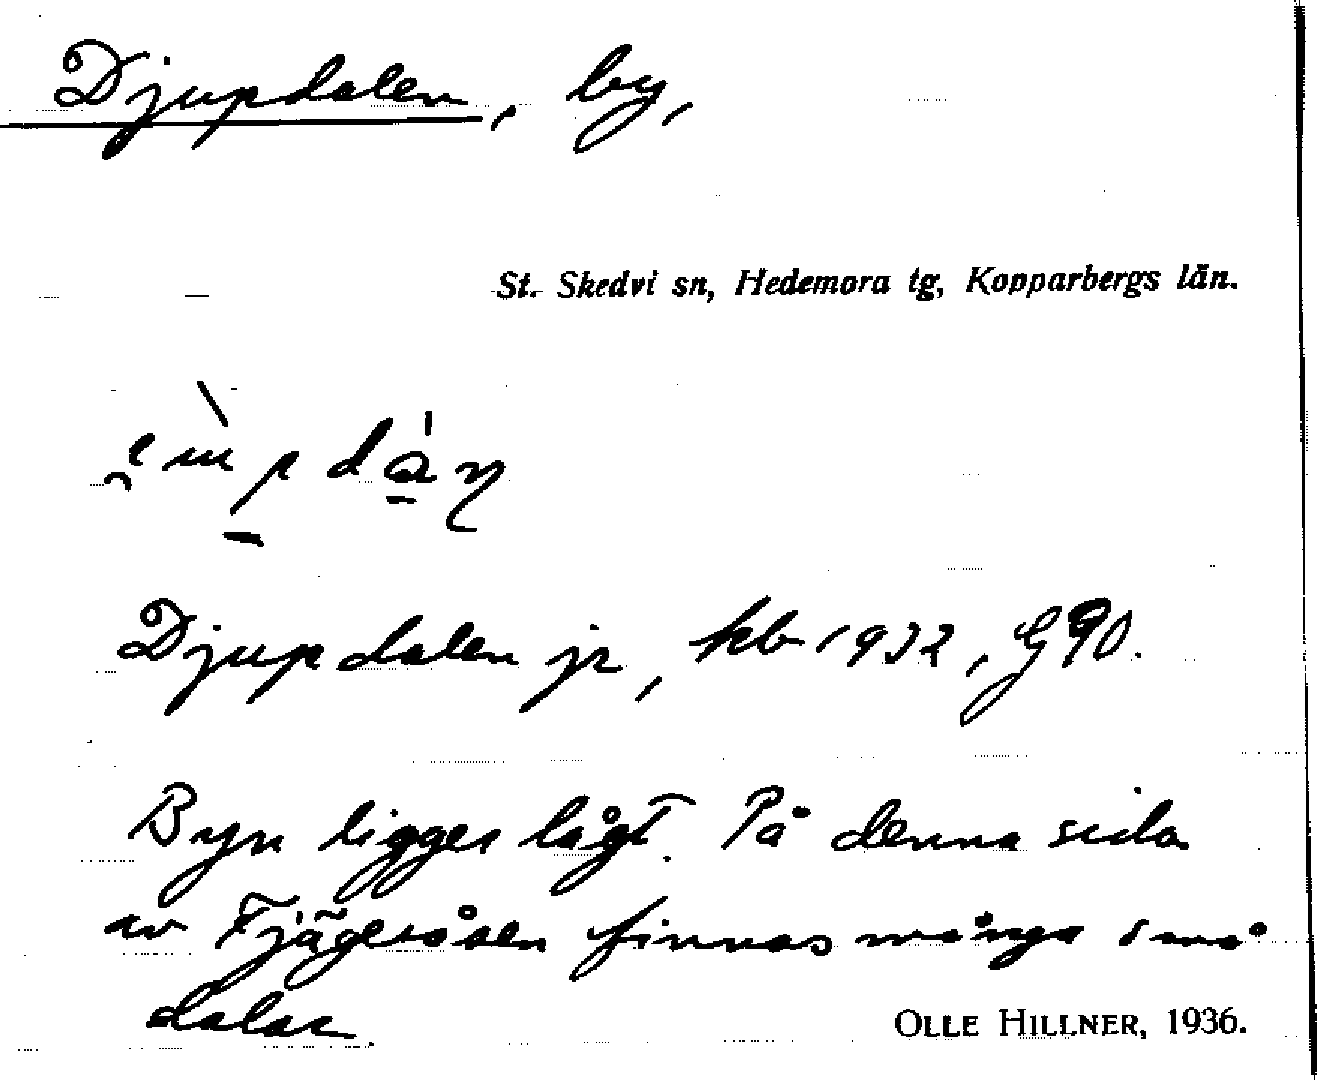 Djupdalen, by,
St. Skedvi sn, Hedemora tg, Kopparbergs län.
Djupdalen jr, kb 1932, G90.
Byn ligger lågt. På denna sida
av Fjägersåsen finnas många små
dalar.
OLLE HILLNER, 1936.